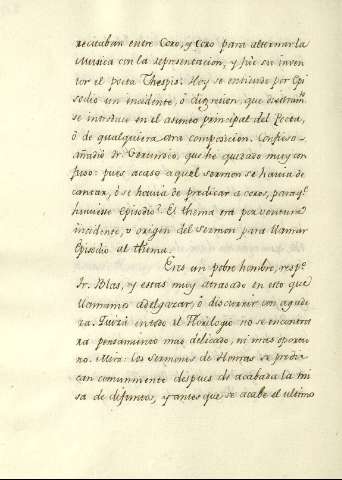 recitaban entre Coro, y Coro para alternar la
Musica con la representacion, y fue su inven
tor el poeta Thespis. Hoy se entiende por Epi
sodio un incidente, ó digresion, que diestram.te
se introduce en el asunto principal del Poeta,
ó de qualquiera otra composicion. Confieso
añadio Fr Gerundio, que he quedado muy con
fuso: pues acaso aquel sermon se havia de
cantar, ó se havia de predicar a coros, para q.e
huviese Episodio? El thema era por ventura
incidente, u origen del Sermon para llamar
Episodio al thema.
Eres un pobre hombre, resp.e
Fr. Blas, y estas muy atrasado en esto que
llamamos adelgazar, ó discurrir con agude
za. Quizá en todo el Florilogio no se encontra
ra pensamiento mas delicado, ni mas oportu
no. Mira: los Sermones de Honras se predi
can comunmente despues de acabada la mi
sa de difuntos, y antes que se acabe el ultimo